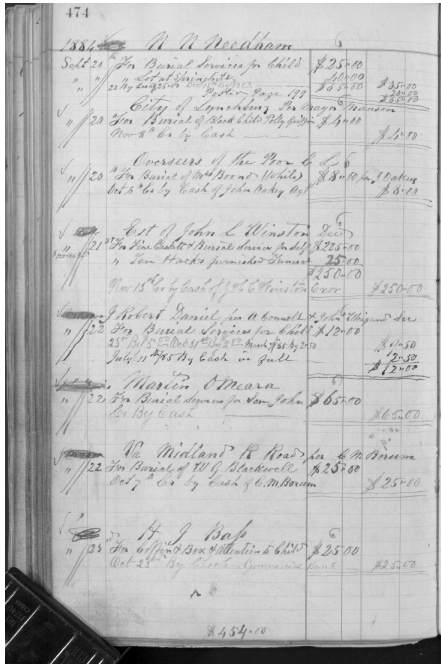 474
1884 N N Needham
Sept 20 For Burial Services for Child $25-00
" " " Lot at Springhill 40-00
22 By Cash 25-00 $65-00 $35-00
Ledger Page 199 30-00
$65-00
City of Lynchburg Per Mayor Manson
" 20 For Burial of Black Child $4-00
Nov 8th Cr by Cash $4-00
Overseers of the Poor C. C.
" 20 For Burial of Mrs Boone (White) $8-00 per J Oakey
Oct 6th Cr by Cash of John Oakey Agt $8-00
Est of John L Winston Decd
" 21st For Fine Caskett & Burial Services for Self $225-00
" Ten Hacks furnished Funeral 25-00
$250-00
Nov 15th Cr by Cash of Winston Exor $250-00
J Robert Daniel per
" 22 For Burial Services for Child $12-00
25th
July 11th/85 By Cash in full 12-50
$12-00
Martin O'Meara
" 22 For Burial Services for Son John $65-00
Cr By Cash $65-00
Va Midland R Road per C. M Borum
" 22 For Burial of W G Blackwell $25-00
Oct 7th Cr by Cash of C. M Borum $25-00
H. J Bass
" 23 For Coffin & Box & Attention to Child $25-00
Oct 23 By Check on Commercial Bank $25-00
$454-00